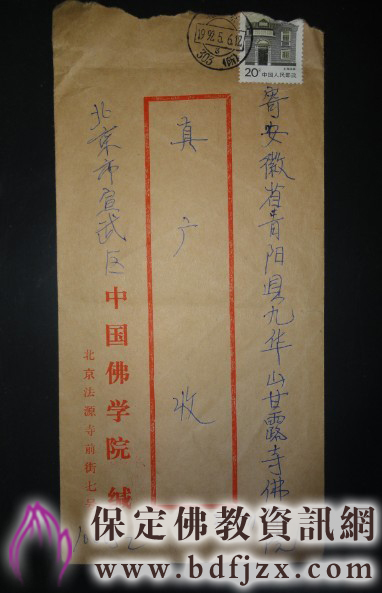 寄安徽省青阳县九华山甘露寺佛
院
真广 收
北京市宣武区
中国佛学院 缄
北京法源寺前街七号
1992.5.6.12
20分 中国人民邮政
保定佛教資訊網
www.bdfjzx.com